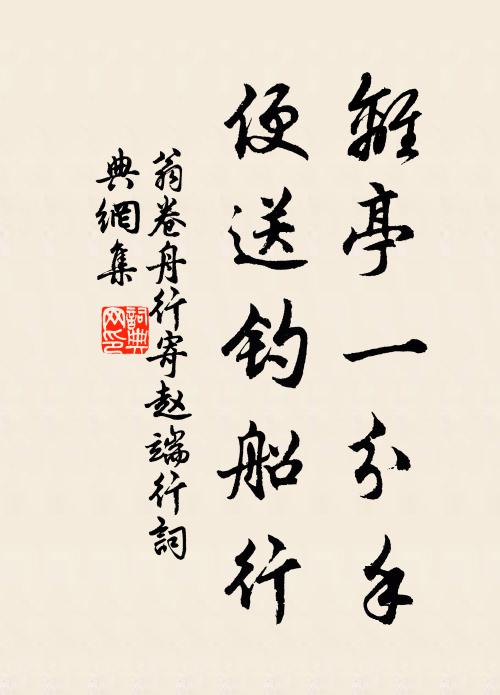 離亭一分手
便送钓船行
翁卷舟行寄赵端行詞
典網集
詞典网印